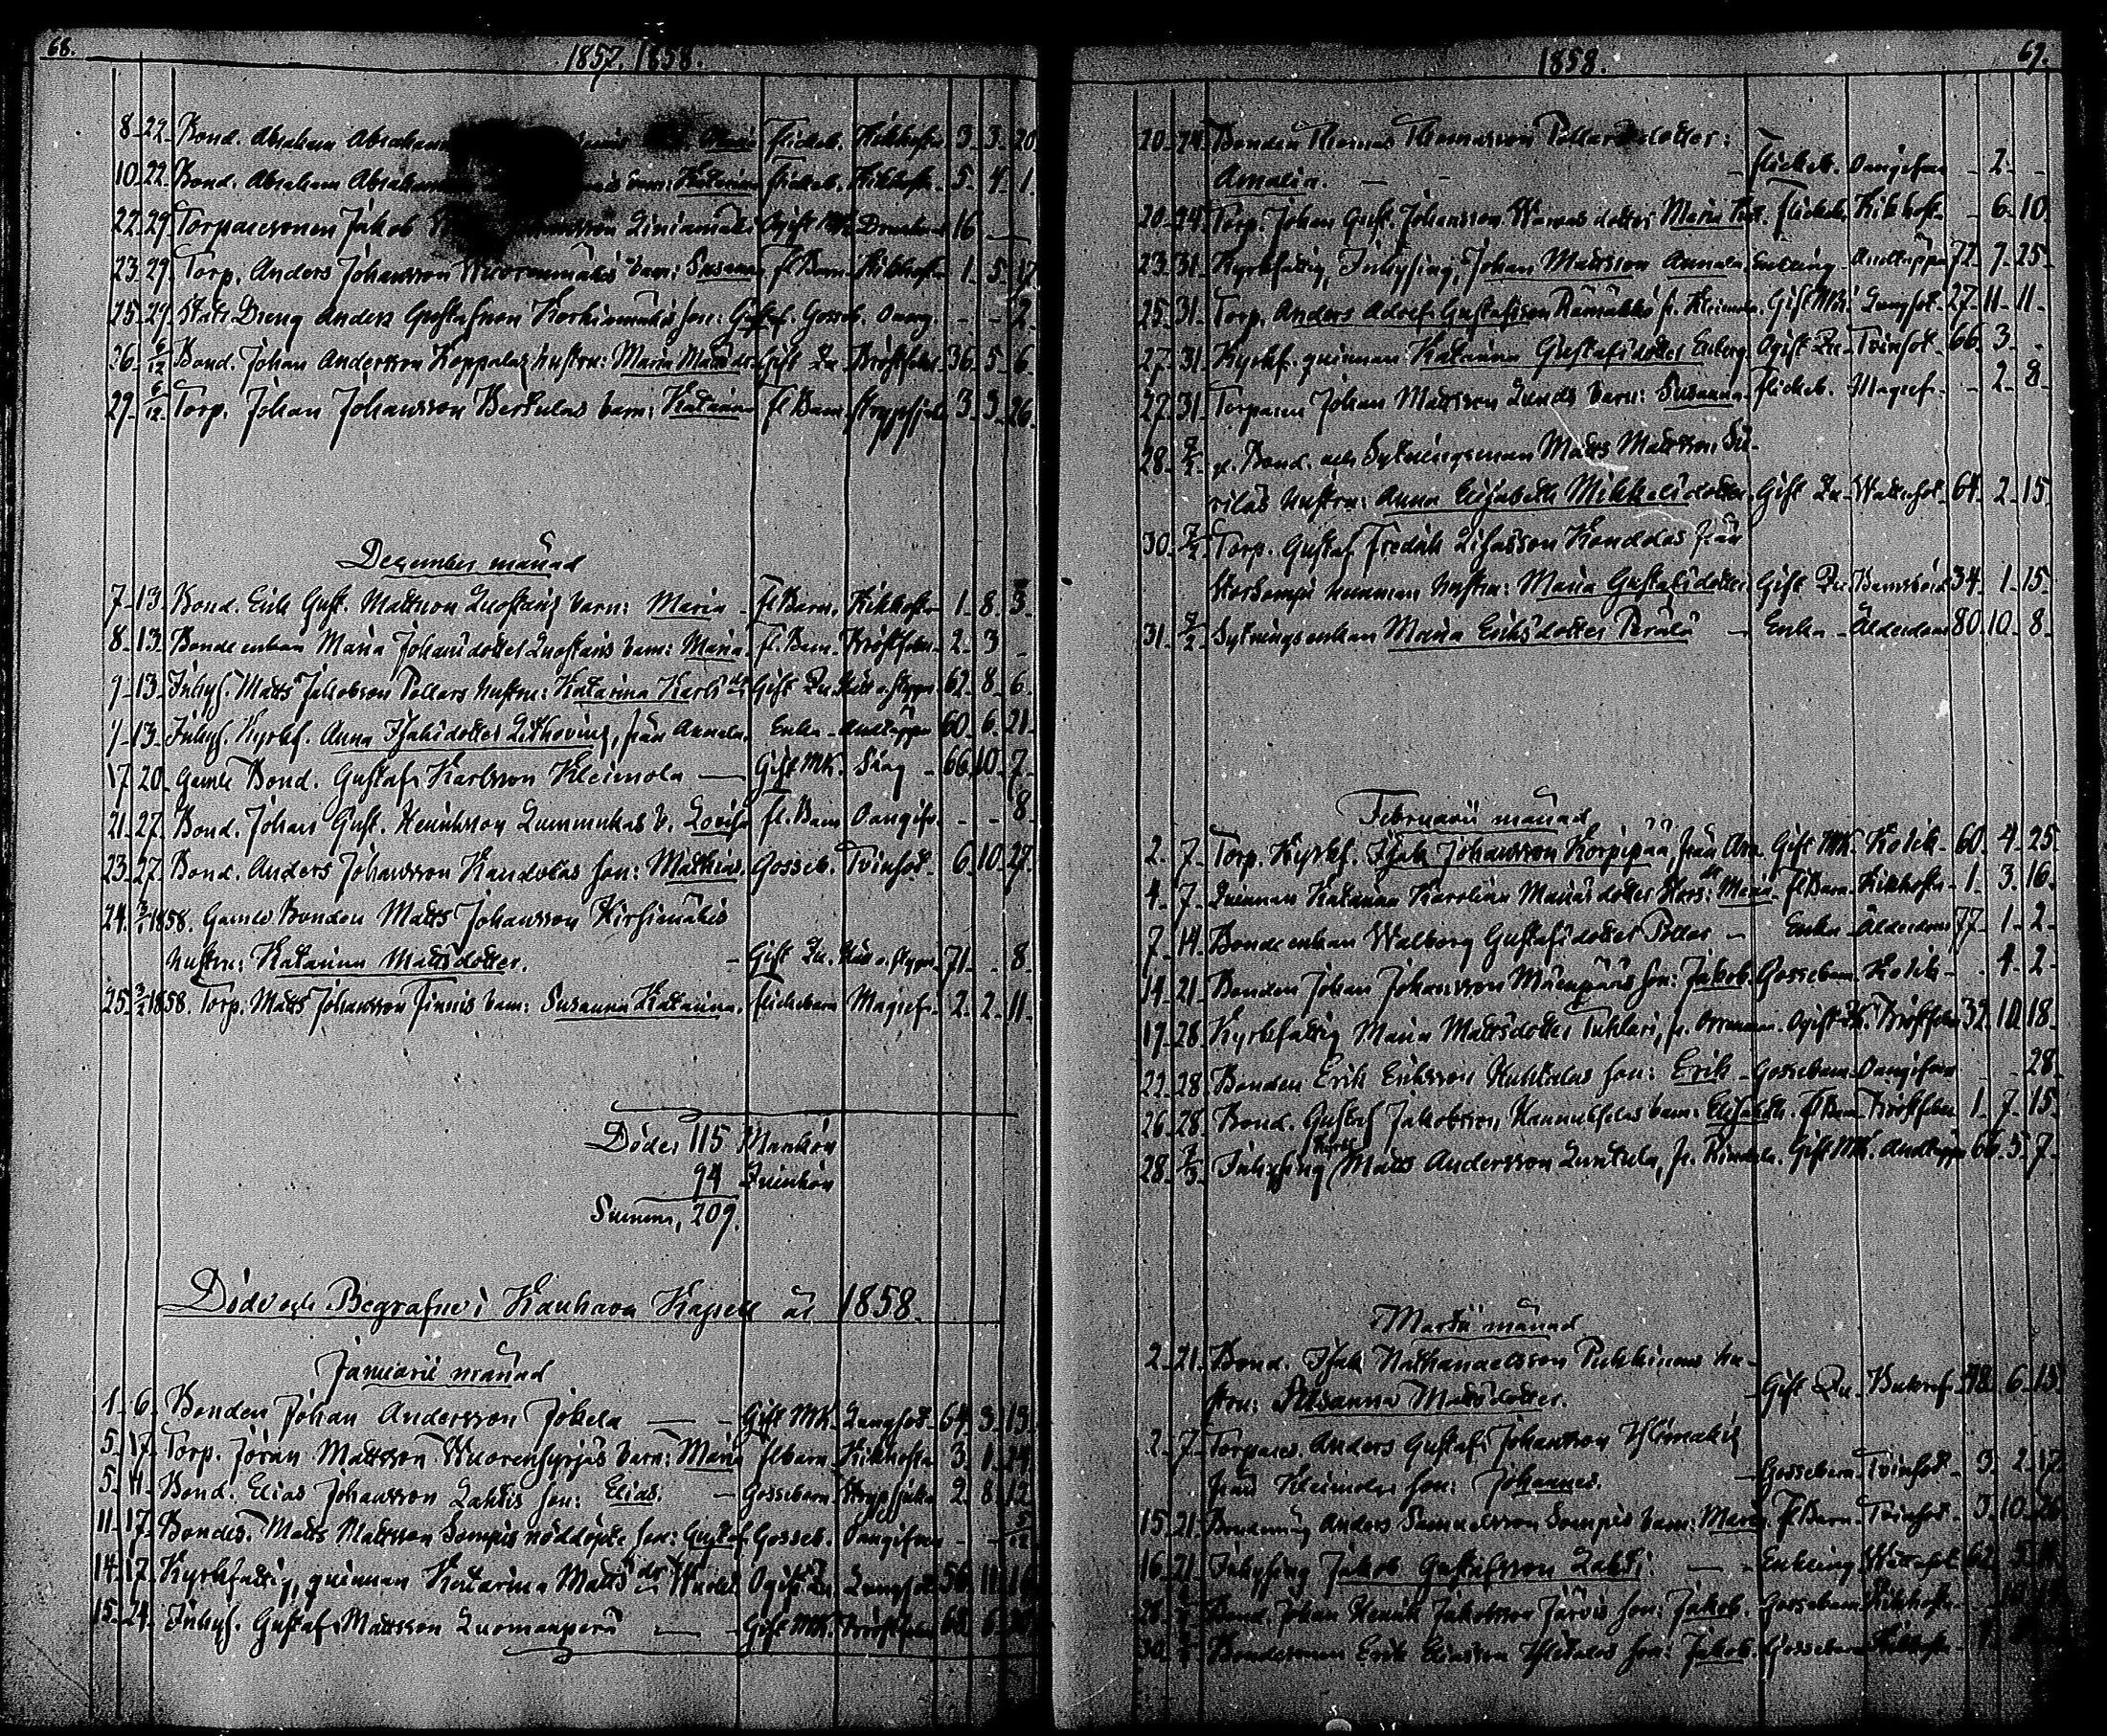 68.
1857. 1858.
8. 22. Bond. Abraham Abrahams Flickeb. Kikhosta 3. 3. 20
10. 22. Bond. Abraham Abrahamsson barn: Katarina Flickeb. Kikhosta. 5. 4. 1.
22. 29. Torparesonen Jakob Liniamäki Ogift MK. Drunknad 16
23. 29. Torp. Anders Johansson Wuorenmäkis barn: Susanna fl Barn. Kikhosta. 1. 5. 17
25. 29. Stats Dreng Anders Gustafsson Korkiamäkis son: Gustaf. Gosseb. Oang. - - 2.
26. 6/12 Bond. Johan Andersson Koppalas hustru: Maria Matts dr Gift Qu. Bröstfeber 36. 5. 6.
29. 6/12 Torp. Johan Johansson Bertulas barn: Katarina fl Barn. Strypsjuk. 3. 3. 26.
December månad
7. 13. Bond. Erik Gust. Mattsson Luostaris barn: Maria - fl Barn. Kikhosta. 1. 8. 3.
8. 13. Bondeenkan Maria Johansdotter Luostaris barn: Maria. fl. Barn. Bröstfeber. 2. 3 -
9. 13. Inhys. Matts Jakobsson Pollars hustru: Katarina Karls dr Gift Qu. Håll o. stygn. 62. 8. 6.
9. 13. Inhys. Kyrkf. Anna Isaksdotter Lithoving, från Annala. Enka. Andtäppa 60. 6. 21.
17. 20. Gamle Bond. Gustaf Karlsson Kleimola — Gift MK. Slag - 66. 10. 7.
21. 27. Bond. Johan Gust. Henriksson Lummukas b. Lovisa fl. Barn Oangifv. - - 8.
23. 27. Bond. Anders Johansson Kandolas son: Mathias. Gosseb. Tvinsot. 6. 10. 27.
24. 3/1 1858. Gamle Bonden Matts Johansson Kirsimäkis
hustru: Katarina Mattsdotter. - Gift Qu. Håll o. stygn. 71. - 8.
25. 3/1 1858. Torp. Matts Johansson Finnis barn: Susanna Katarina. Flickebarn Magref. 2. 2. 11.
Döder 115 Mankön
94 Qvinkön
Summa, 209.
Döde och Begrafne i Kauhava Kapell år 1858.
Januarii månad
1. 6. Bonden Johan Andersson Jokela — - Gift MK. Lungsot. 64. 3. 13.
5. 17. Torp. Jöran Mattsson Wuorensyrjäs barn: Maria flbarn. Kikhosta 3. 1. 24.
5. 11. Bond. Elias Johansson Lahtis son: Elias. - Gossebarn Strypsjuka 2. 8. 12.
11. 17. Bondes. Matts Mattsson Sompis nöddöpte son: Gustaf Gosseb. Oangifven - - 5/12
14. 17. Kyrkfattig, quinnan Katarina Matts dr Ogift Qu. Lungsot 56. 11. 16
15. 24. Inhys. Gustaf Mattsson Luomanperä — - Gift MK. Bröstfeber 60. 6.
1858.
69.
20. 24. Bonden Thomas Thomasson Pollars dotter:
Amalia. — - - Flickeb. Oangifven - 2. -
20. 24. Torp. Johan Gust. Johansson Warmas dotter Maria Kat. Flickeb. Kikhosta - 6. 10.
23. 31. Kyrkfattig, Inhysing, Johan Mattsson Annala Enkling. Andtäppa 72. 7. 25.
25. 31. Torp. Anders Adolf Gustafsson Rämäkkö fr. Kleimola. Gift MK. Lungsot. 27. 11. 11.
27. 31. Kyrkf. quinnan Katarina Gustafsdotter Enberg Ogift Qu. Tvinsot. 66. 3. -
27. 31. Torparen Johan Mattsson Lunds barn: Susanna. Flickeb. Magref. - 2. 8.
28. 7/2 gl. Bond. och Sytningsman Matts Mattsson
rilas hustru: Anna Elisabeth Mikkelsdotter. Gift Qu. Wattusot. 64. 2. 15.
30. 7/2 Torp. Gustaf Fredrik Lifasson Kandolas från
Storkampi hemman hustru: Maria Gustafsdotter Gift Qu. Barnsbörd 34. 1. 15.
31. 7/2 Sytningsenkan Maria Eriksdotter Perälä - Enka. Ålderdom 80. 10. 8.
Februarii månad
2. 7. Torp. Kyrkf. Isak Johansson Korpipää, från Gift MK. Kolik. 60. 4. 25.
4. 7. Quinnan Katarina Karolina Mariasdotter Hars: dr Maria fl Barn. Kikhosta. 1. 3. 16.
7. 14. Bondeenkan Walborg Gustafsdotter Pollar - Enka. Ålderdom 77. 1. 2.
14. 21. Bonden Johan Johansson Mäenpääs son: Jakob Gossebarn. Kolik. - 4. 2.
17. 28. Kyrkfattig Maria Mattsdotter Tuhlari, fr. Orrenmaa. Ogift Qu. Bröstfeber 32. 10. 18.
22. 28. Bonden Erik Eriksson Huhtalas son: Erik. Gossebarn. Oangifven - - 28.
26. 28. Bond. Gustaf Jakobsson Hannukselas barn: Elisabeth. fl Barn. Bröstfeber 1. 7. 15.
28. 7/3 Inhysing Matts Andersson Luntula, fr. Rindala. Gift MK. Andtäppa 66. 5. 7.
Martii månad
2. 21. Bond. Isak Nathanaelsson Pukkinens hu-
stru: Susanna Mattsdotter. - Gift Qu. 48. 6. 13.
2. 7. Torpares. Anders Gustaf Johansson Ylimäkis
från Kleimola son: Johannes. - Gossebarn. Tvinsot. 3. 2. 17.
15. 21. Bondemåg Anders Samuelsson Sompis barn: Maria. fl Barn. Tvinsot. 3. 10. 26
16. 21. Inhysing Jakob Gustafsson Lahti — - Enkling. Wattusot. 62. 5.
28. Bond. Johan Henrik Jakobsson Järvis son: Jakob. Gossebarn. Kikhosta.
30. Bondesonen Erik Eliasson Ylitalos son: Jakob. Gossebarn. Kikhosta